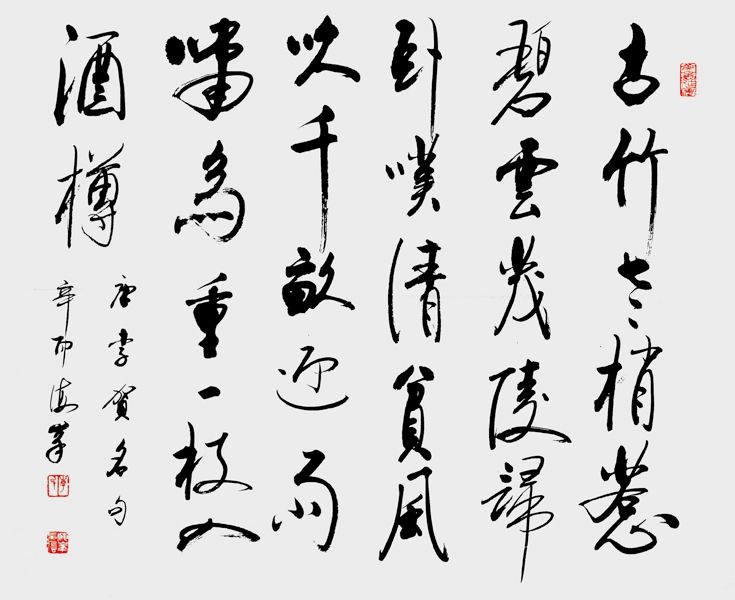 古竹老梢惹
碧雲茂陵歸
卧嘆清貧風
吹千畝迎雨
嘯鳥重一枝入
酒樽
唐李賀名句
辛卯海峯